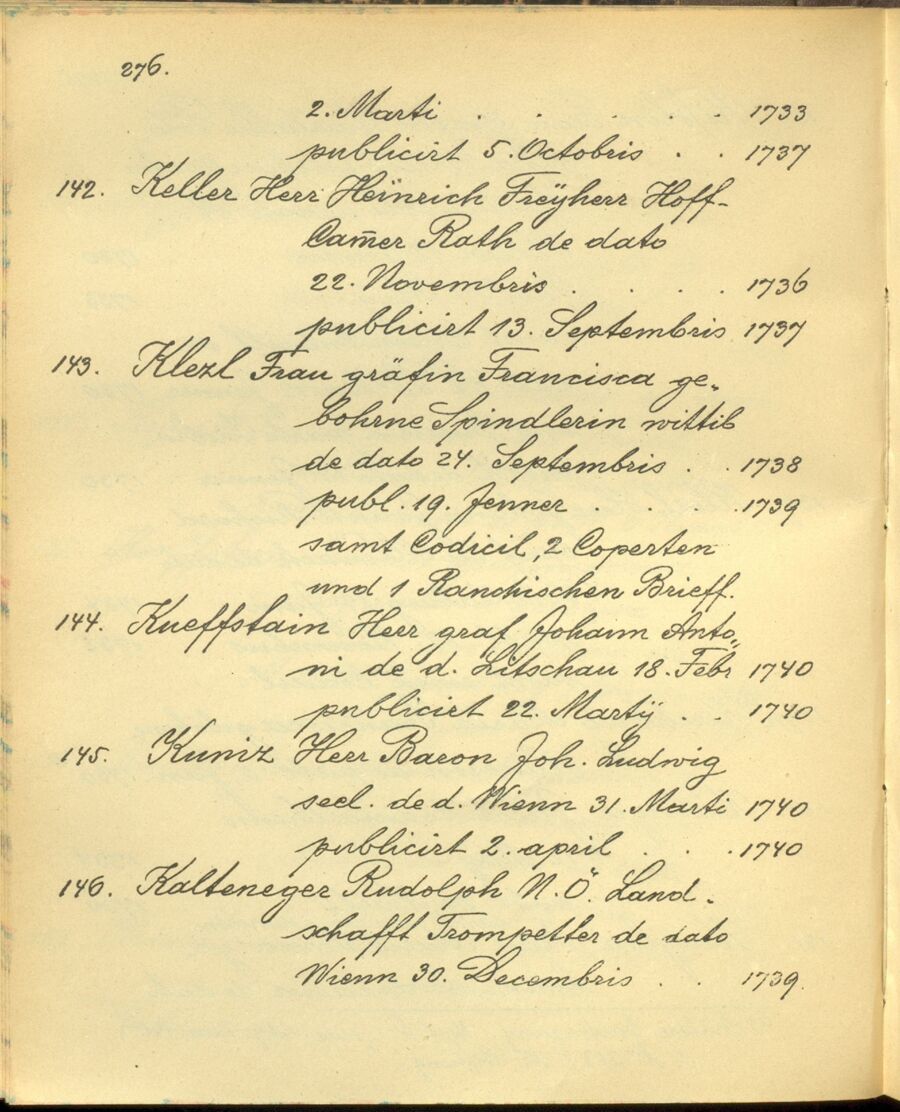 276.
2. Marti . . . . . . 1733
publicirt 5. Octobris . . 1737
142. Keller Herr Heinrich Freÿherr Hoff-
Cam̅er Rath de dato
22. Novembris . . . . 1736
publicirt 13. Septembris 1737
143. Klezl Frau gräfin Francisca ge„
bohrne Spindlerin wittib
de dato 24. Septembris . . 1738
publ. 19. Jenner . . . . 1739
samt Codicil, 2 Coperten
und 1 Ranchischen Brieff.
144. Kueffstain Herr graf Johann Anto„
ni de d. Litschau 18. Febr 1740
publicirt 22. Martÿ . . 1740
145. Kuniz Herr Baron Joh. Ludwig
seel. de d. Wienn 31. Marti 1740
publicirt 2. april . . . 1740
146. Kalteneger Rudolph N. Ö. Land-
schafft Trompetter de dato
Wienn 30. Decembris . . 1739.